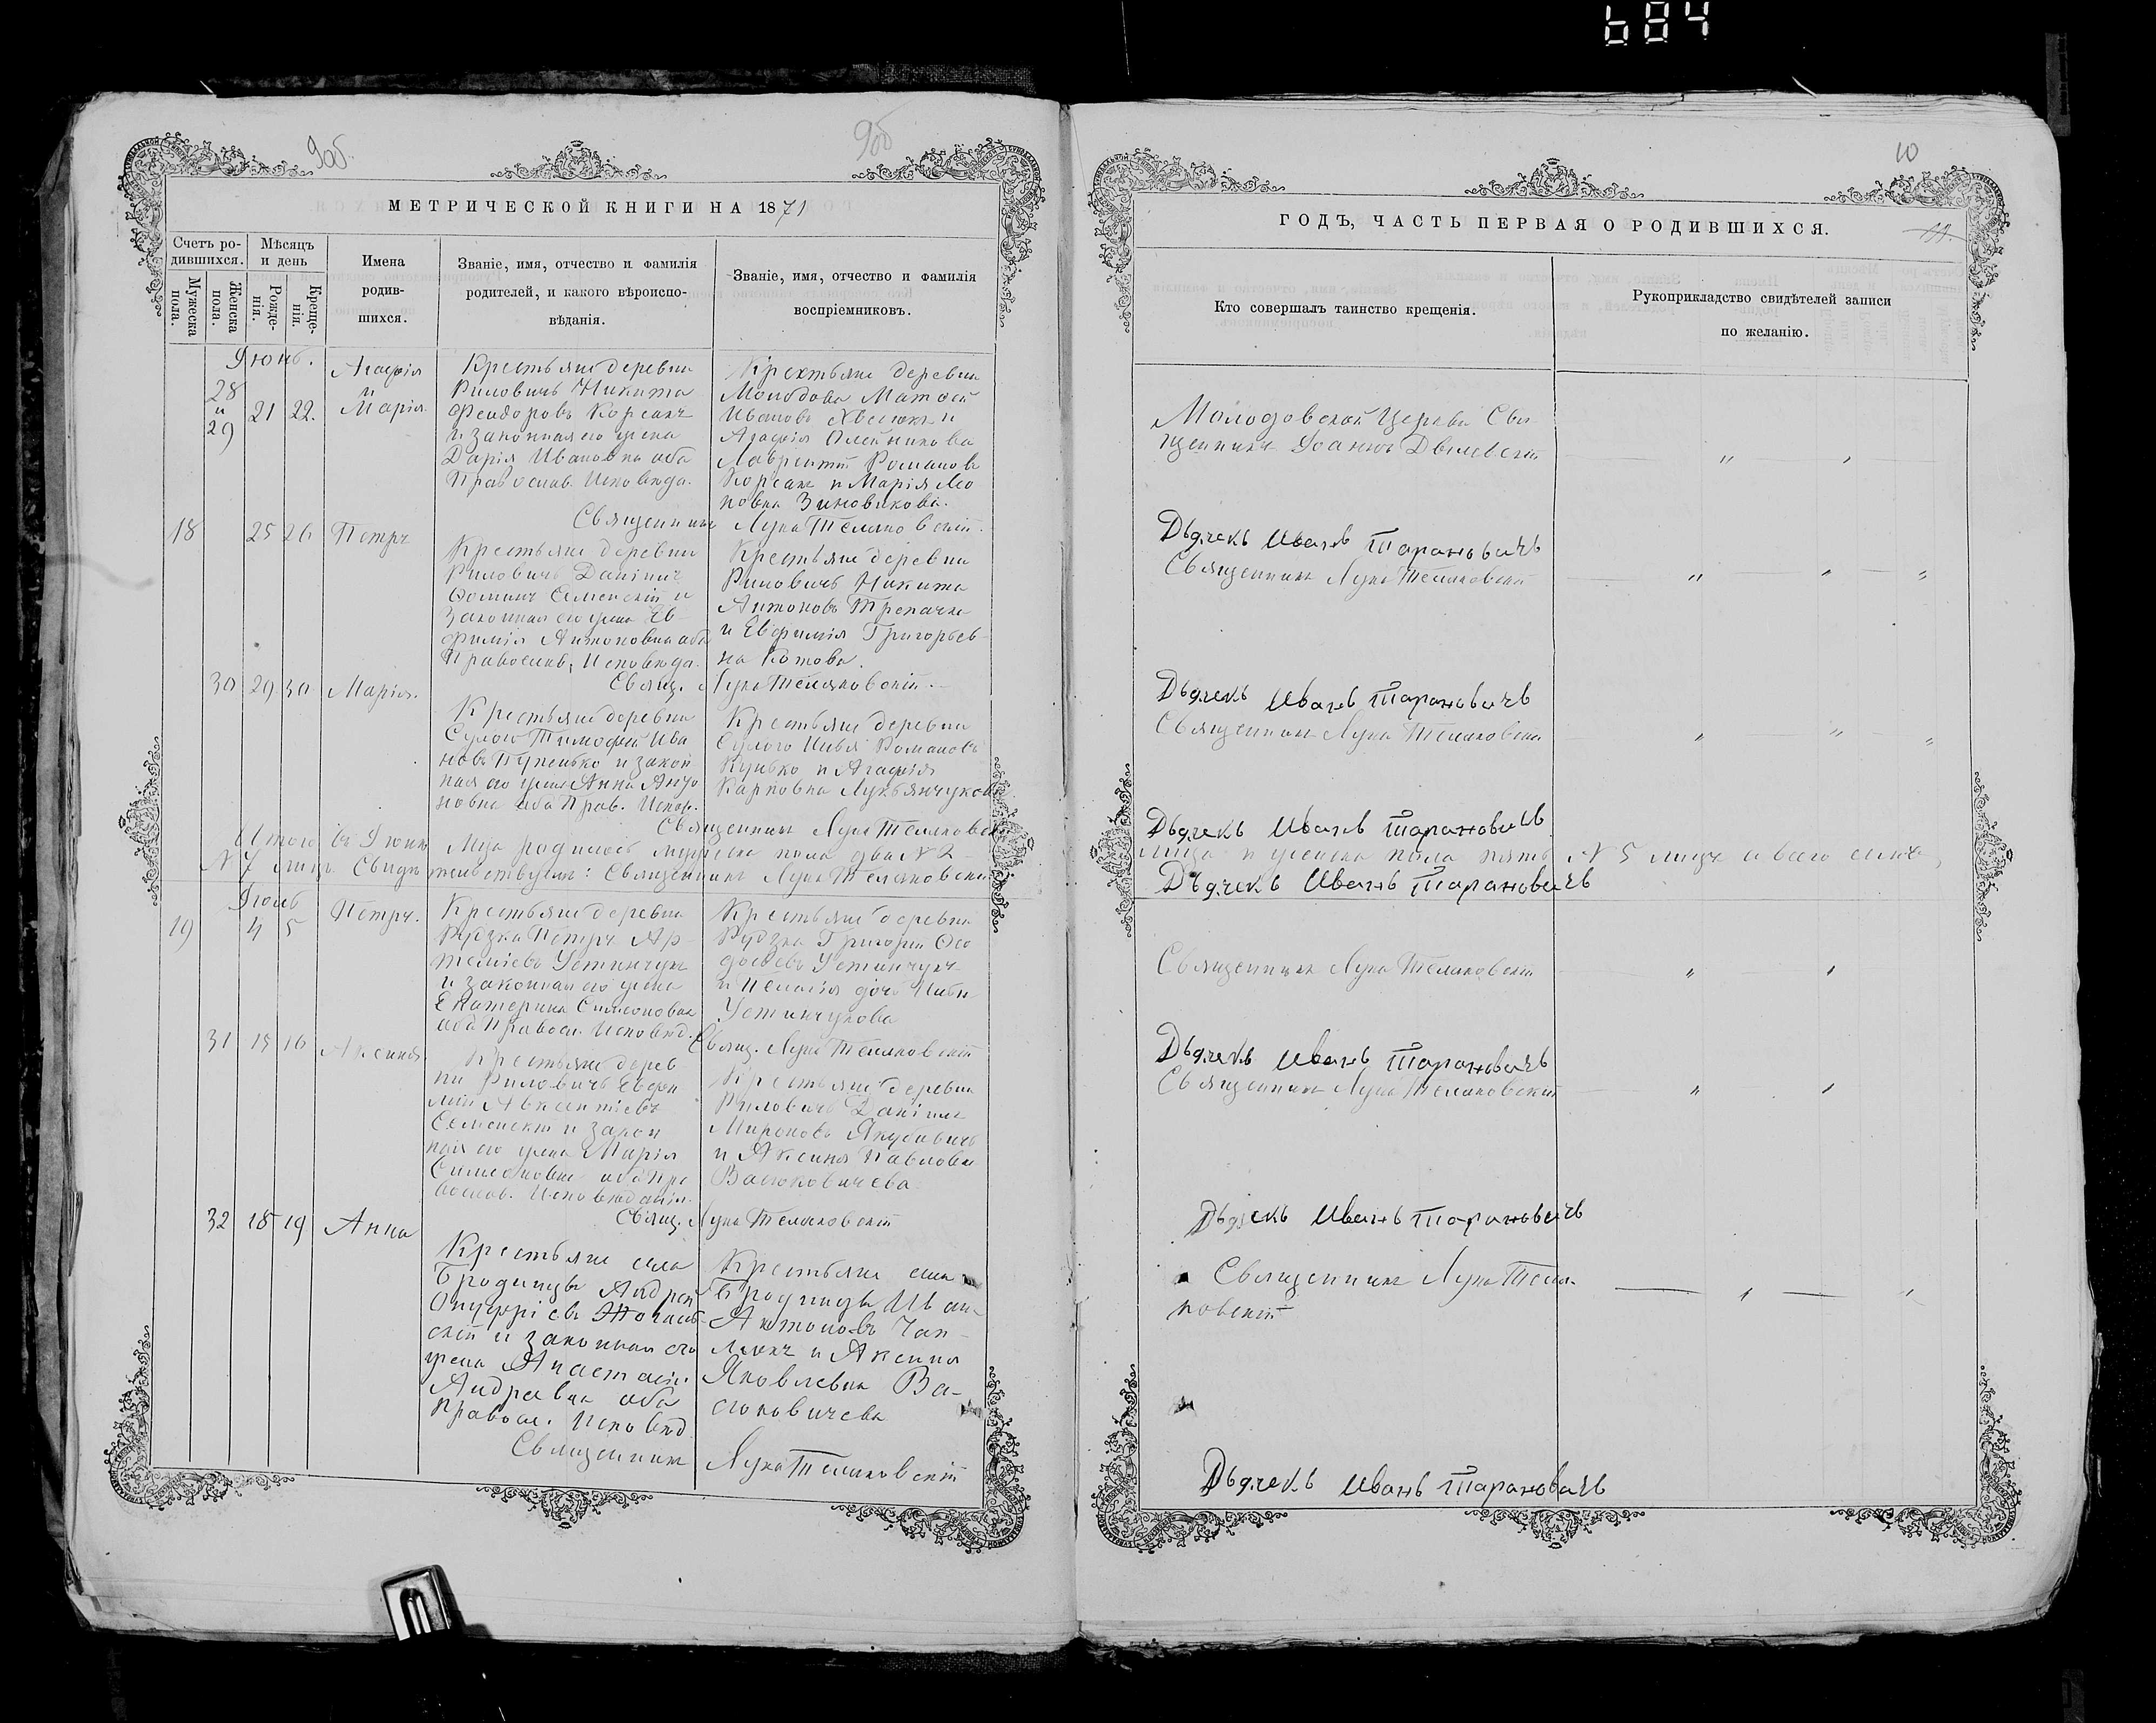 684
9об.
9об
МЕТРИЧЕСКОЙ КНИГИ НА 1871
Счетъ ро-
дившихся.
Мѣсяцъ
и день
Мужеска
пола.
Женска
пола.
Рожде-
нія.
Креще-
нія.
Имена
родив-
шихся.
Званіе, имя, отчество и фамилія
родителей, и какого вѣроиспо-
вѣданія.
Званіе, имя, отчество и фамилія
воспріемниковъ.
Іюнь.
28
и
29
21 22.
Агафія
и
Марія.
Крестьяне деревни
Риловичъ Никита
Феодоровъ Корсакъ
и законная его жена
Дарія Ивановна оба
Православ. Исповѣда.
Крестьяне деревни
Молодова Матѳей
Ивановъ
Агафія Олейникова
Лаврентій Романовъ
Корсакъ и Марія
Зиновикова.
Священникъ Лука Теляковскій.
18 25 26 Петръ
Крестьяне деревни
Риловичъ Даніилъ
Ѳоминъ Селенскій и
законная его жена Ев-
фимія Антоновна оба
Православ. Исповѣда.
Крестьяне деревни
Риловичъ Никита
Антоновъ Трепачко
и Евфимія Григорьев-
на Котова.
Свящ. Лука Теляковскій.
30 29 30 Марія.
Крестьяне деревни
Сухого Тимофей Ива
новъ и закон
ная его жена Анна
новна оба Прав. Испов.
Крестьяне деревни
Сухого Романовъ
Кунько и Агафія
Карповна Лукьянчукова.
Священникъ Лука Теляковскій
Итого въ Іюнѣ М-ца родилось мужеска пола два № 2
№ 7 лицъ. Свидѣтельствуемъ: Священникъ Лука Теляковскій
Іюль
19 4 5 Петръ.
Крестьяне деревни
Рудзка Петръ Ар-
темиевъ Устинчукъ
и законная его жена
Екатерина Симеоновна
оба Правосл. Исповѣд.
Крестьяне деревни
Рудзка Григорій Ѳео
досіевъ Устинчукъ
и Пелагія дочь
Устинчукова
Свящ. Лука Теляковскій
31 15 16 Аксинія
Крестьяне дерев
ни Риловичъ
Авксентіевъ
Селенскій и закон
ная его жена Марія
Симеоновна оба Пра
вослав. Исповѣданія.
Крестьяне деревни
Риловичъ Даніилъ
Мироновъ Якубовичъ
и Аксинія Павлова
Васюковичева
Свящ. Лука Теляковскій
32 18 19 Анна
Крестьяне села
Бродницы Андрей
Онуфріевъ
скій и законная его
жена Анастасія
Андреевна оба
Правосл. Исповѣд.
Крестьяне села
Бродницы Иван
Антоновъ Чап-
люкъ и Аксинія
Яковлевна Ва-
сюковичева
Священникъ Лука Теляковскій
10
ГОДЪ, ЧАСТЬ ПЕРВАЯ О РОДИВШИХСЯ.
Кто совершалъ таинство крещенія.
Рукоприкладство свидѣтелей записи
по желанію.
Молодовской Церкви Свя
щенникъ Іоаннъ
Дьячекъ Иванъ Тарановичъ
Священникъ Лука Теляковскій
Дьячекъ Иванъ Тарановичъ
Священникъ Лука Теляковскій
Дьячекъ Иванъ Тарановичъ
лица и женска пола пять № 5 лицъ а всего
Дьячекъ Иванъ Тарановичъ
Священникъ Лука Теляковскій
Дьячекъ Иванъ Тарановичъ
Священникъ Лука Теляковскій
Дьячекъ Иванъ Тарановичъ
Священникъ Лука Теля
ковскій
Дьячекъ Иванъ Тарановичъ